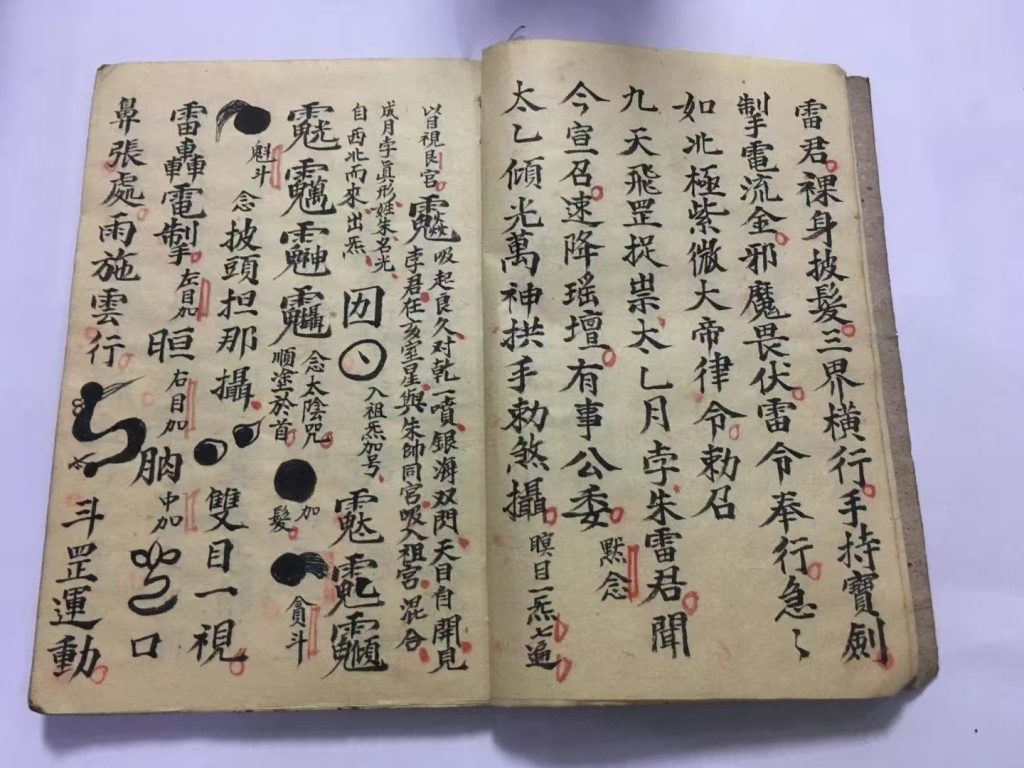 雷君裸身披髮三界橫行手持寶劍
掣電流金邪魔畏伏雷令奉行急〻
如北極紫微大帝律令勅召
九天飛罡捉祟太乙月孛朱雷君聞
今宣召速降瑤壇有事公委默念
太乙傾光萬神拱手勅煞攝瞑目一炁七遍
以目視艮宮吸起良久对乾一噴銀海双閃天目自開見
成月孛眞形姓朱名光孛君在亥室星與朱帥同宮吸入祖宮混合
自西北而來出炁囙入祖炁加亐
念太陰咒順塗於首加髮貪斗
魁斗念披頭担那攝雙目一視
雷轟電掣左目加晅右目加朒中加口
鼻張處雨施雲行斗罡運動